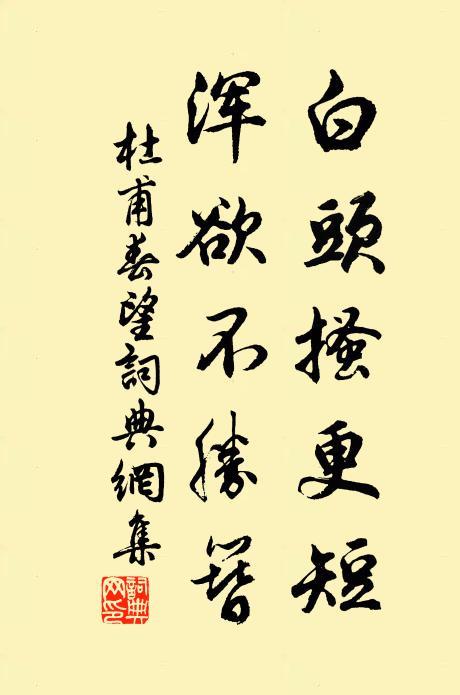 白頭搔更短
渾欲不勝簪
杜甫春望詞典網集
詞典網印